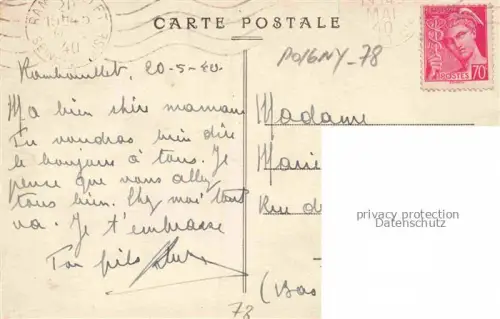 CARTE POSTALE
POIGNY_78
POSTES 70
Rambouillet, 20-5-40.
Ma bien chère maman
Tu voudras bien dire
le bonjour à tous. Je
pense que vous allez
tous bien. Chez moi tout
va. Je t'embrasse
Ton fils
Madame
Marie
Rue de
privacy protection
Datenschutz
(Bas
78